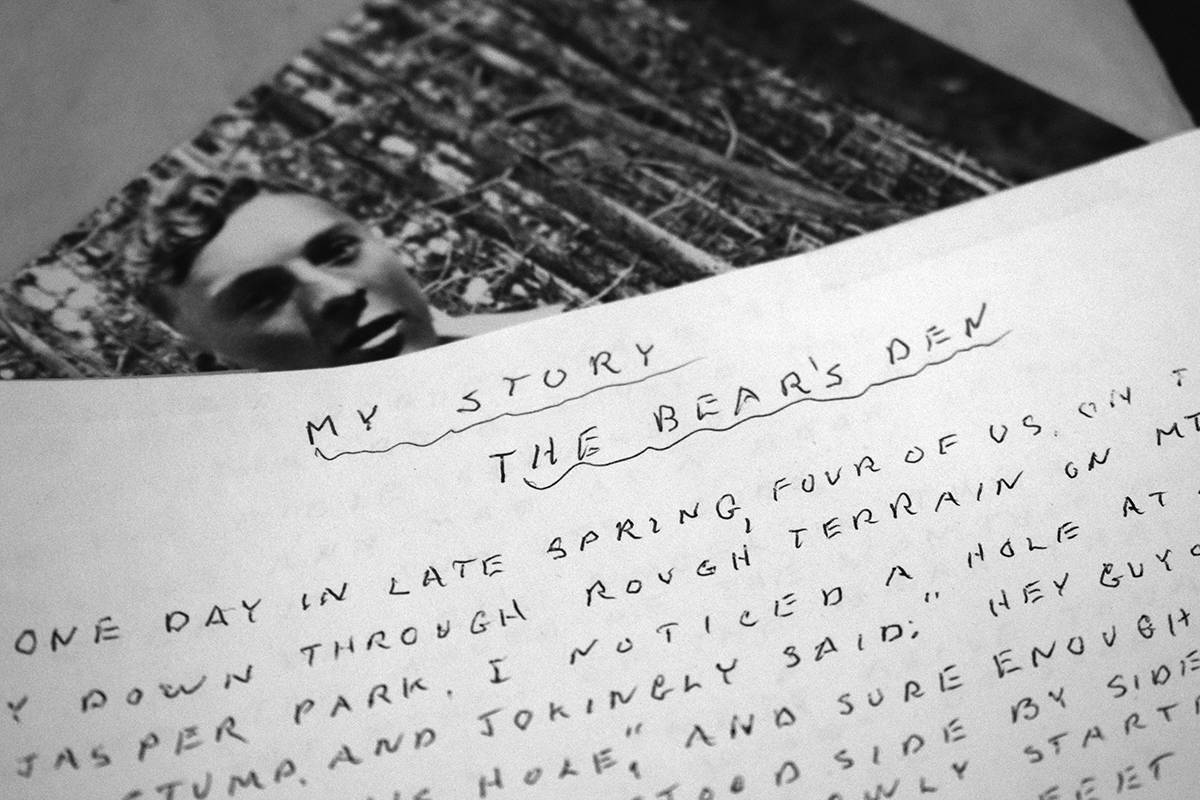 MY STORY
THE BEAR'S DEN
ONE DAY IN LATE SPRING, FOUR OF US, ON T
Y DOWN THROUGH ROUGH TERRAIN ON MT
JASPER PARK. I NOTICED A HOLE AT
STUMP, AND JOKINGLY SAID: " HEY GUYS
HOLE", AND SURE ENOUGH
STOOD SIDE BY SIDE
START
FEET